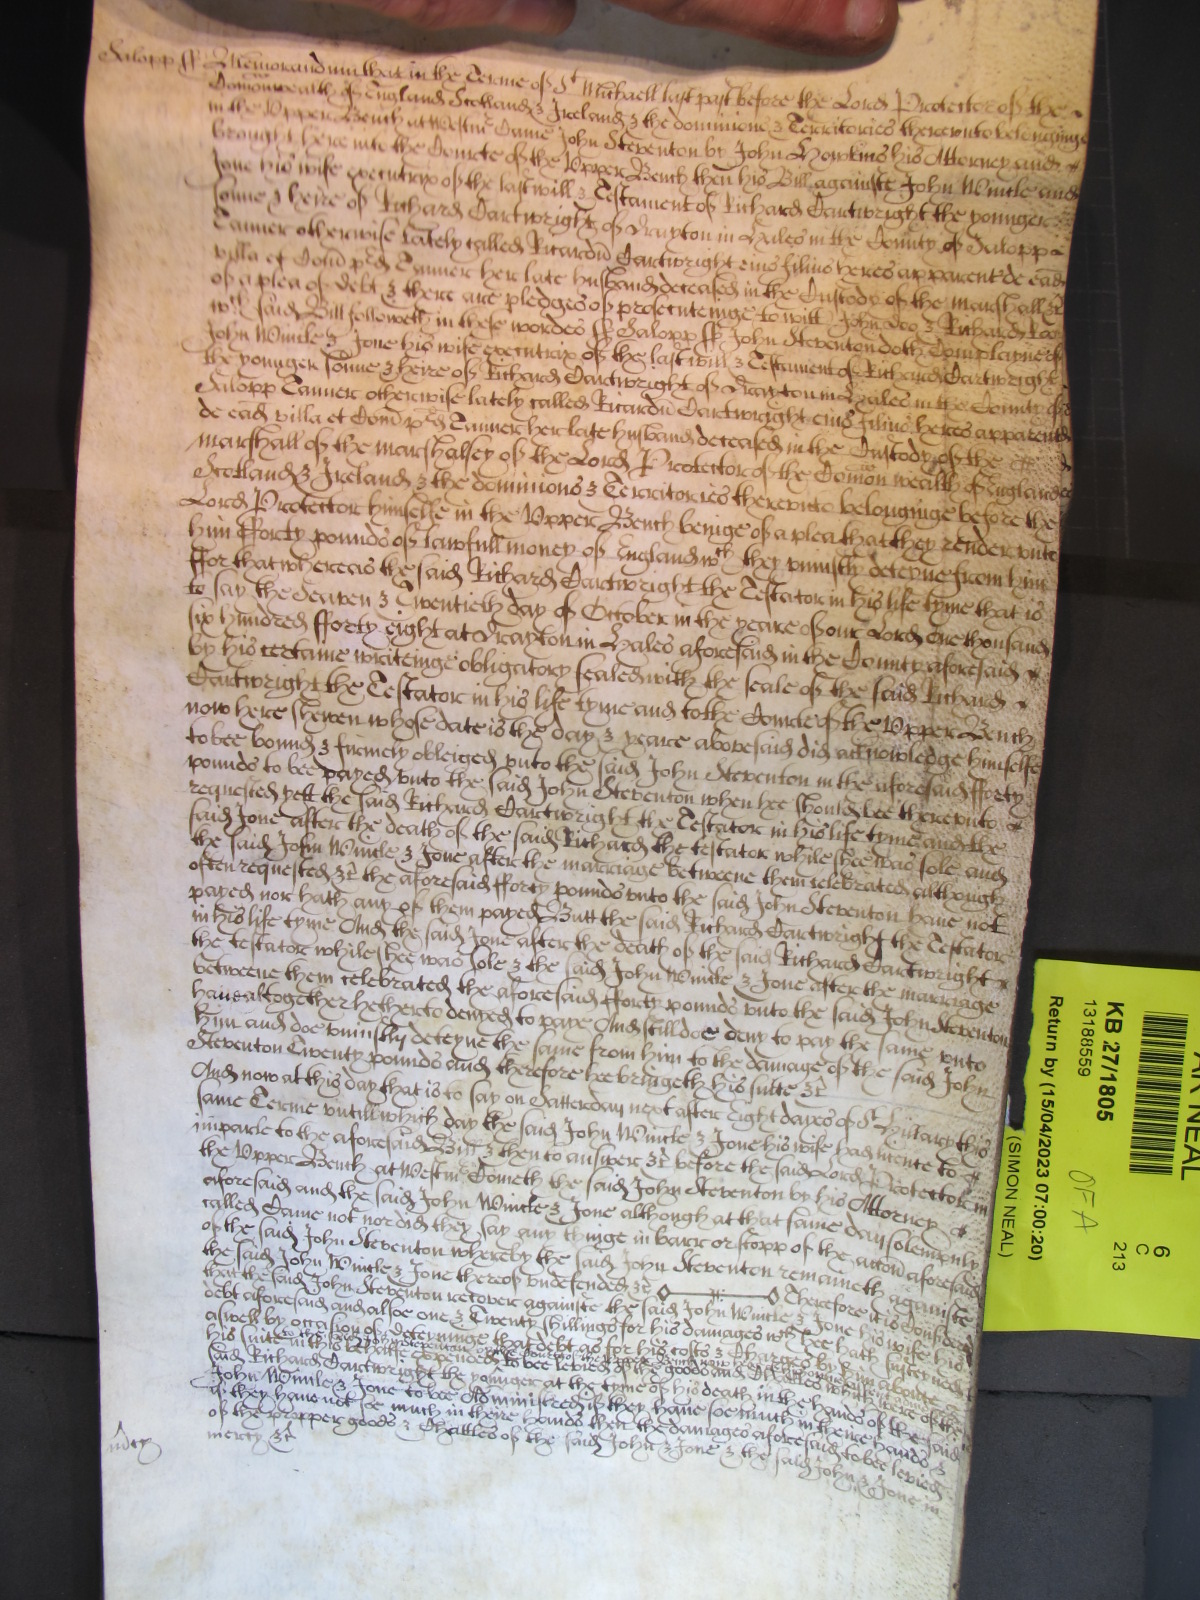 Salopp ss Memorandum that in the Terme of St Michaell last past before the Lord Protector of the
Comonwealth of England Scotland & Ireland & the dominions & Territories thereunto belonginge
in the Upper Bench at Westmr Came John Steventon by John Hawkins his Attorney and
brought here into the Courte of the Upper Bench then his Bill againste John Wintle and
Jone his wife executrix of the last will & Testament of Richard Cartwright the younger
sonne & heire of Richard Cartwright of Drayton in Hales in the County of Salopp
Tanner otherwise lately called Ricardu Cartwright eius filius heres apparent de ead
villa et Com pd Tanner her late husband deceased in the Custody of the Marshall &c
of a plea of debt & there are pledges of prosecuteinge to witt John Doo & Richard Roo
wch said Bill followeth in these wordes ss Salopp ss John Steventon doth Complayne of
John Wintle & Jone his wife executrix of the last will & Testament of Richard Cartwright
the younger sonne & heire of Richard Cartwright of Drayton in Hales in the County of
Salopp Tanner otherwise lately called Ricardu Cartwright eius filius heres apparent
de ead villa et Com pd Tanner her late husband deceased in the Custody of the
Marshall of the Marshalsey of the Lord Protector of the Comon wealth of England
Scotland & Ireland & the dominions & Territories thereunto belonginge before the
Lord Protector himselfe in the Upper Bench beinge of a plea that they render unto
him fforty pounds of lawfull money of England wch they uniustly deteyne from him
ffor that whereas the said Richard Cartwright the Testator in his life tyme that is
to say the Seaven & Twentieth day of October in the yeare of our Lord one thousand
six hundred fforty eight at Drayton in Hales aforesaid in the County aforesaid
by his certaine writeinge obligatory sealed with the seale of the said Richard
Cartwright the Testator in his life tyme and to the Courte of the Upper Bench
now here shewen whose date is the day & yeare abovesaid did acknowledge himselfe
to bee bound & firmely obleiged unto the said John Steventon in the aforesaid fforty
pounds to bee payed unto the said John Steventon when hee should bee thereunto
requested yett the said Richard Cartwright the Testator in his life tyme and the
said Jone after the death of the said Richard the testator while shee was sole and
the said John Wintle & Jone after the marriage betweene them celebrated although
often requested &c the aforesaid fforty pounds unto the said John Steventon have not
payed nor hath any of them payed Butt the said Richard Cartwright the Testator
in his life tyme And the said Jone after the death of the said Richard Cartwright
the testator while shee was sole & the said John Wintle & Jone after the marriage
betweene them celebrated the aforesaid fforty pounds unto the said John Steventon
have altogether hetherto denyed to paye And still doe deny to pay the same unto
him and doe uniustly deteyne the same from him to the damage of the said John
Steventon Twenty pounds and therefore hee bringeth his suite &c
And now at this day that is to say on Satterday next after eight dayes of St Hillary this
same Terme untill which day the said John Wintle & Jone his wife had licence to
imparle to the aforesaid Bill & then to answer &c before the said Lord Protector in
the Upper Bench at Westmr Cometh the said John Steventon by his Attorney
aforesaid and the said John Wintle & Jone although at that same day solempnly
called Came not nor did they say any thinge in barr or stopp of the accon aforesaid
of the said John Steventon whereby the said John Steventon remaineth againste
the said John Wintle & Jone thereof undefended &c Therefore it is Considered
that the said John Steventon recover againste the said John Wintle & Jone his wife his
debt aforesaid and alsoe one & Twenty shillings for his damages wch hee hath susteyned
aswell by occasion of deteyninge that debt as for his costs & Charges by him about
his suite in this behalfe expended to bee levied of the goods and Chattles which were of the
said Richard Cartwright the younger at the tyme of his death in the hands of the said
John Wintle & Jone to bee Administred if they have soe much in theire hands &
if they have not soe much in theire hands then the damages aforesaid to bee levied
of the propper goods & Chattles of the said John & Jone & the said John & Jone in
mercy &c
KB 27/1805
13188559
Return by (15/04/2023 07:00:20)
(SIMON NEAL)
6
C
213
OFA
NEAL